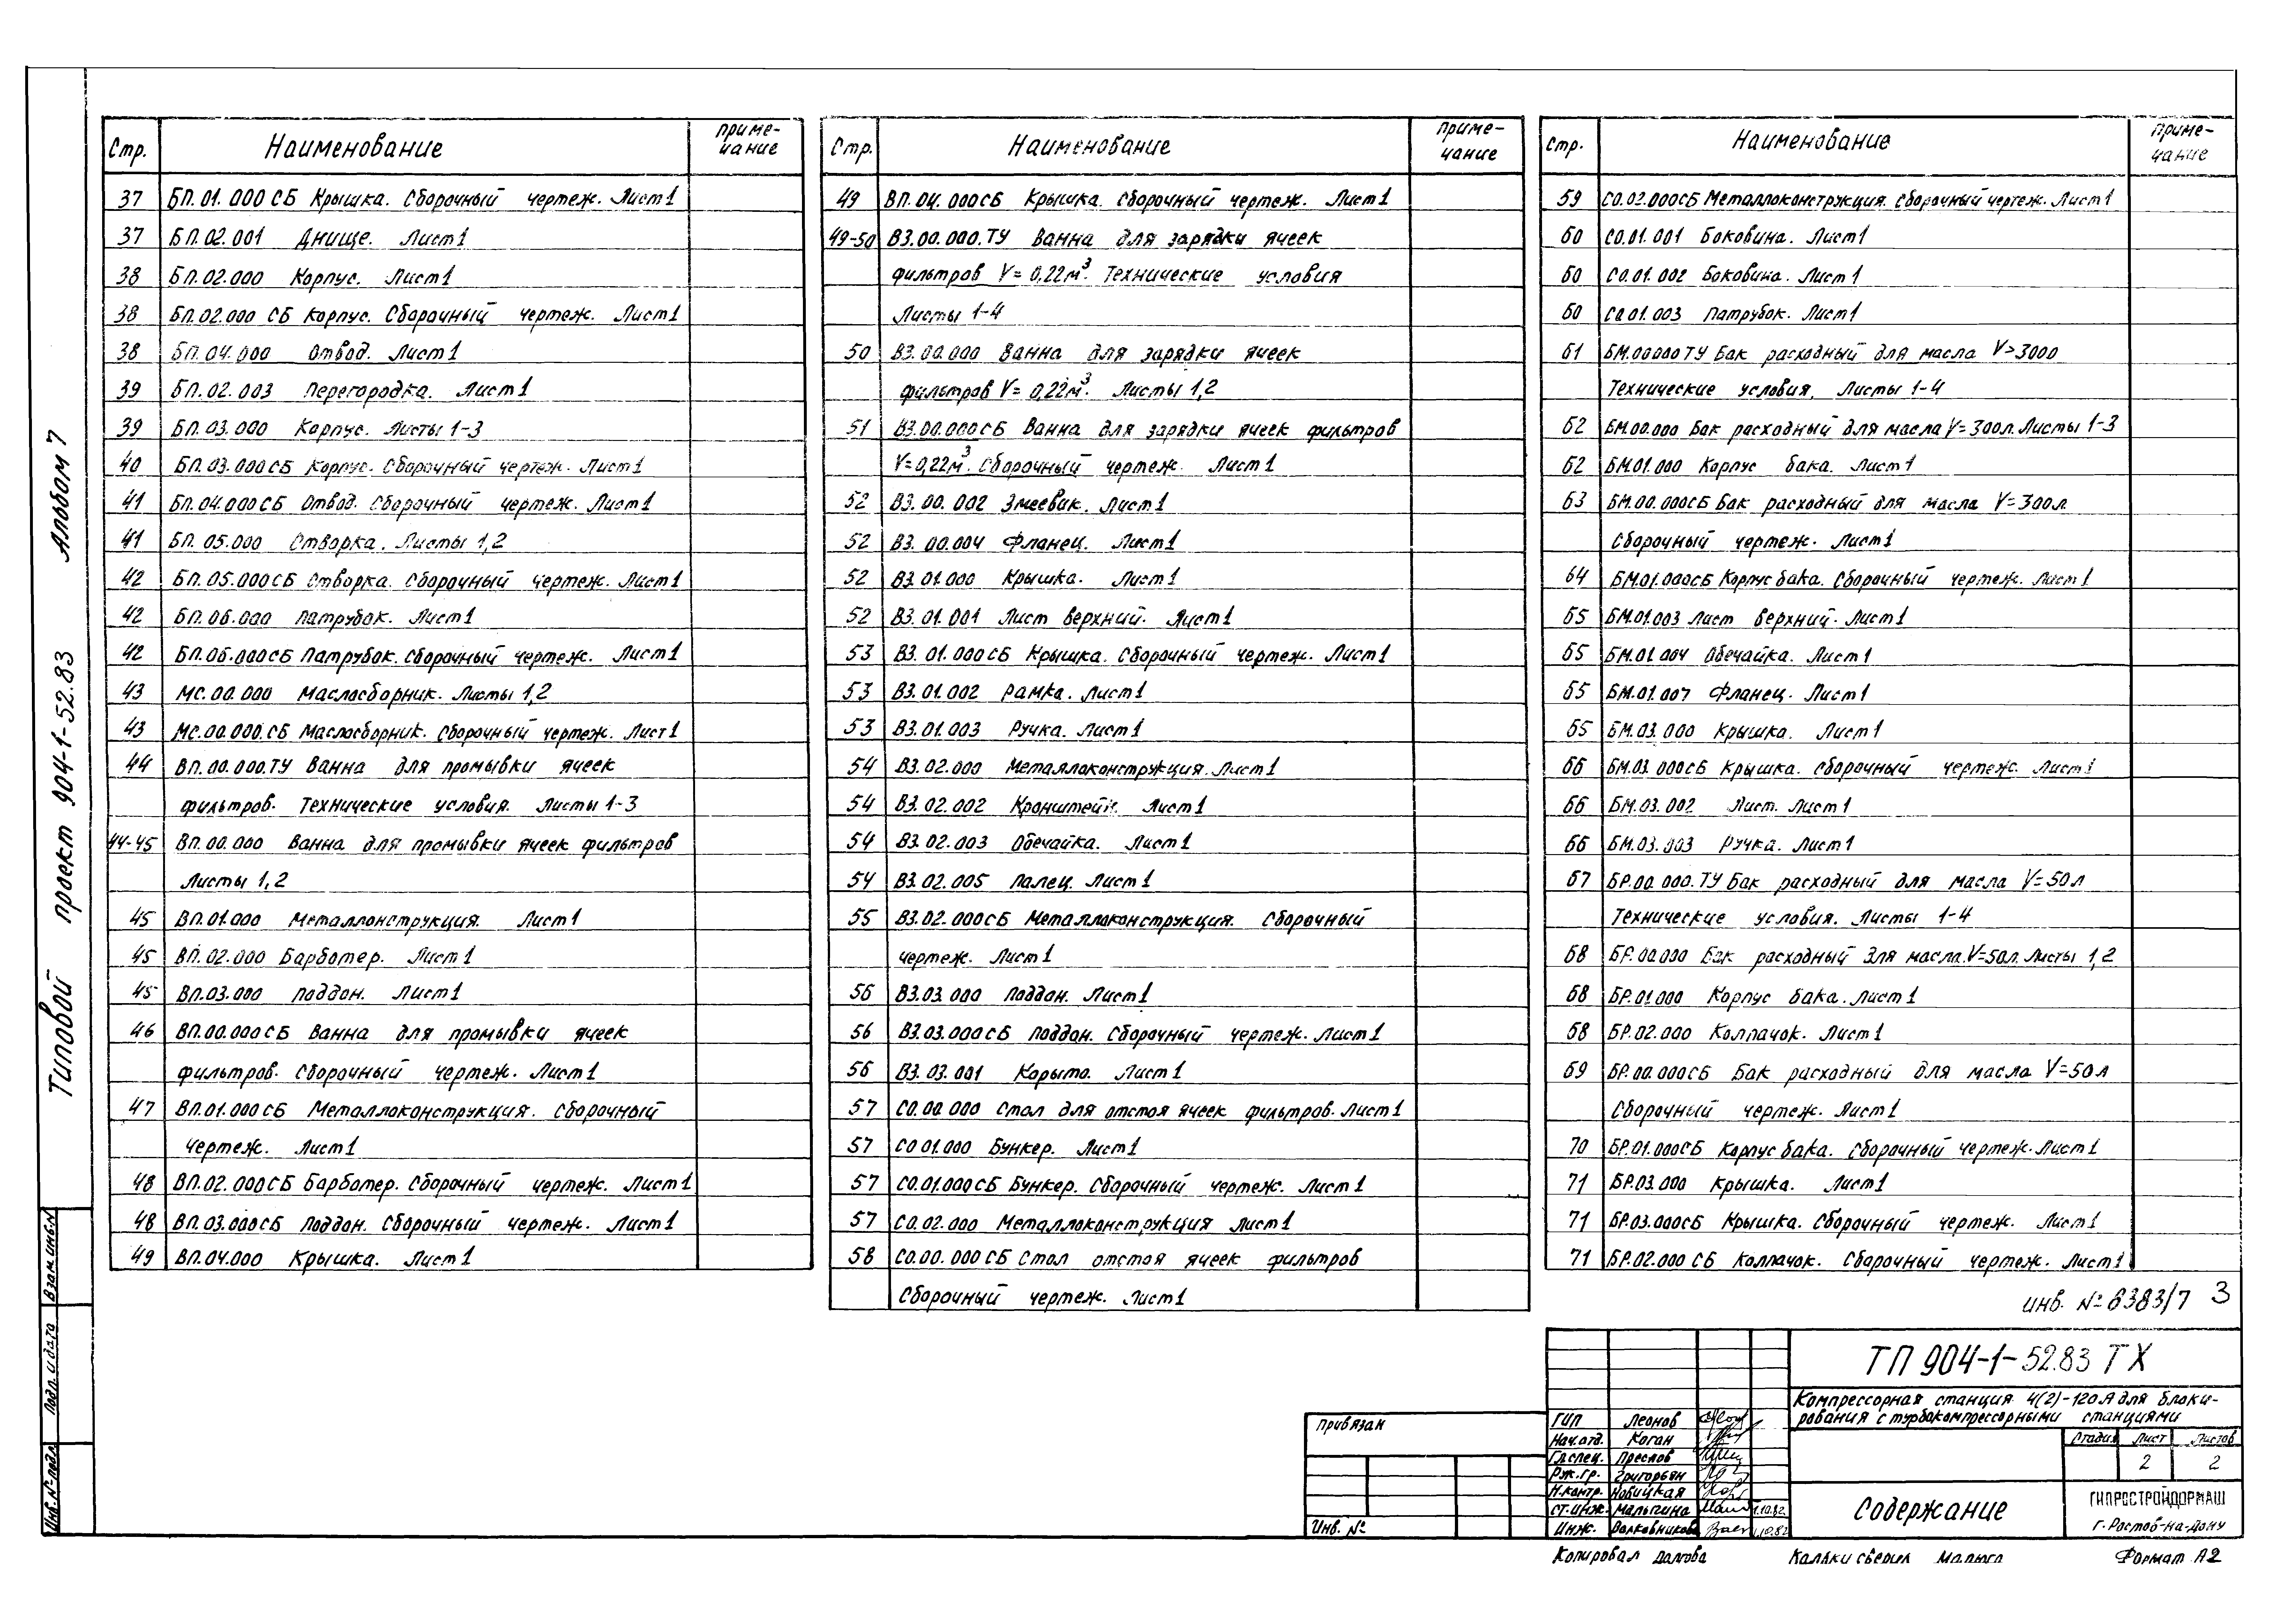 Типовой проект 904-1-52.83 Альбом 7
Взам. инв. N
Подп. и дата
Инв. № подл
Стр. Наименование Приме-чание
37 БП.01.000 СБ Крышка. Сборочный чертеж. Лист 1
37 БП.02.001 Днище. Лист 1
38 БП.02.000 Корпус. Лист 1
38 БП.02.000 СБ Корпус. Сборочный чертеж. Лист 1
38 БП.04.000 Отвод. Лист 1
39 БП.02.003 Перегородка. Лист 1
39 БП.03.000 Корпус. Листы 1-3
40 БП.03.000СБ Корпус. Сборочный чертеж. Лист 1
41 БП.04.000СБ Отвод. Сборочный чертеж. Лист 1
41 БП.05.000 Створка. Листы 1,2
42 БП.05.000СБ Створка. Сборочный чертеж. Лист 1
42 БП.06.000 Патрубок. Лист 1
42 БП.06.000СБ Патрубок. Сборочный чертеж. Лист 1
43 МС.00.000 Маслосборник. Листы 1,2
43 МС.00.000.СБ Маслосборник. Сборочный чертеж. Лист 1
44 ВП.00.000.ТУ Ванна для промывки ячеек
фильтров. Технические условия. Листы 1-3
44-45 ВП.00.000 Ванна для промывки ячеек фильтров
Листы 1,2
45 ВП.01.000 Металлонструкция. Лист 1
45 ВП.02.000 Барботер. Лист 1
45 ВП.03.000 Поддон. Лист 1
46 ВП.00.000СБ Ванна для промывки ячеек
фильтров. Сборочный чертеж. Лист 1
47 ВП.01.000СБ Металлоконструкция. Сборочный
чертеж. Лист 1
48 ВП.02.000СБ Барботер. Сборочный чертеж. Лист 1
48 ВП.03.000СБ Поддон. Сборочный чертеж. Лист 1
49 ВП.04.000 Крышка. Лист 1
Стр. Наименование Приме-чание
49 ВП.04.000СБ Крышка. Сборочный чертеж. Лист 1
49-50 ВЗ.00.000.ТУ Ванна для зарядки ячеек
фильтров V=0,22м³. Технические условия
Листы 1-4
50 ВЗ.00.000 Ванна для зарядки ячеек
фильтров V=0,22м³. Листы 1,2
51 ВЗ.00.000СБ Ванна для зарядки ячеек фильтров
V=0,22м³. Сборочный чертеж. Лист 1
52 ВЗ.00.002 Змеевик. Лист 1
52 ВЗ.00.004 Фланец. Лист 1
52 ВЗ.01.000 Крышка. Лист 1
52 ВЗ.01.001 Лист верхний. Лист 1
53 ВЗ.01.000СБ Крышка. Сборочный чертеж. Лист 1
53 ВЗ.01.002 Рамка. Лист 1
53 ВЗ.01.003 Ручка. Лист 1
54 ВЗ.02.000 Металлоконструкция. Лист 1
54 ВЗ.02.002 Кронштейн. Лист 1
54 ВЗ.02.003 Обечайка. Лист 1
54 ВЗ.02.005 Палец. Лист 1
55 ВЗ.02.000СБ Металлоконструкция. Сборочный
чертеж. Лист 1
56 ВЗ.03.000 Поддон. Лист 1
56 ВЗ.03.000СБ Поддон. Сборочный чертеж. Лист 1
56 ВЗ.03.001 Корыто. Лист 1
57 СО.00.000 Стол для отстоя ячеек фильтров. Лист 1
57 СО 01.000 Бункер. Лист 1
57 СО.01.000СБ Бункер. Сборочный чертеж. Лист 1
57 СО.02.000 Металлоконструкция Лист 1
58 СО.00.000СБ Стол отстоя ячеек фильтров
Сборочный чертеж. Лист 1
Стр. Наименование Приме-чание
59 СО.02.000СБ Металлоконструкция. Сборочный чертеж. Лист 1
60 СО.01.001 Боковина. Лист 1
60 СО.01.002 Боковина. Лист 1
60 СО.01.003 Патрубок. Лист 1
61 БМ.00000ТУ Бак расходный для масла V>300л
Технические условия. Листы 1-4
62 БМ.00.000 Бак расходный для масла V=300л. Листы 1-3
62 БМ.01.000 Корпус бака. Лист 1
63 БМ.00.000СБ Бак расходный для масла V=300л.
Сборочный чертеж. Лист 1
64 БМ.01.000СБ Корпус бака. Сборочный чертеж. Лист 1
65 БМ.01.003 Лист верхний. Лист 1
65 БМ.01.004 Обечайка. Лист 1
65 БМ.01.007 Фланец. Лист 1
65 БМ.03.000 Крышка. Лист 1
66 БМ.03.000СБ Крышка. Сборочный чертеж. Лист 1
66 БМ.03.002 Лист. Лист 1
66 БМ.03.003 Ручка. Лист 1
67 БР.00.000.ТУ Бак расходный для масла V=50л
Технические условия. Листы 1-4
68 БР.00.000 Бак расходный для масла.V=50л. Листы 1,2
68 БР.01.000 Корпус бака. Лист 1
68 БР.02.000 Колпачок. Лист 1
69 БР.00.000СБ Бак расходный для масла V=50л
Сборочный чертеж. Лист 1
70 БР.01.000СБ Корпус бака. Сборочный чертеж. Лист 1
71 БР.03.000 Крышка. Лист 1
71 БР.03.000СБ Крышка. Сборочный чертеж. Лист 1
71 БР.02.000 СБ Колпачок. Сборочный чертеж. Лист 1
инв. № 8383/7 3
ТП 904-1-52.83 ТХ
Компрессорная станция 4(2)-120А для блоки-
рования с турбокомпрессорными станциями
Стадия Лист Листов
2 2
Содержание
ГИПРОСТРОЙДОРМАШ
г. Ростов-на-Дону
Привязан
Инв. №
ГИП Леонов
Нач.отд. Коган
Гл.спец. Преснов
Рук.гр. Григорьян
Н.контр. Новицкая
Ст.инж. Малыгина 1.10.82
Инж. Волковникова 1.10.82
Копировал Долгова Кальки сверил Малюга Формат А2